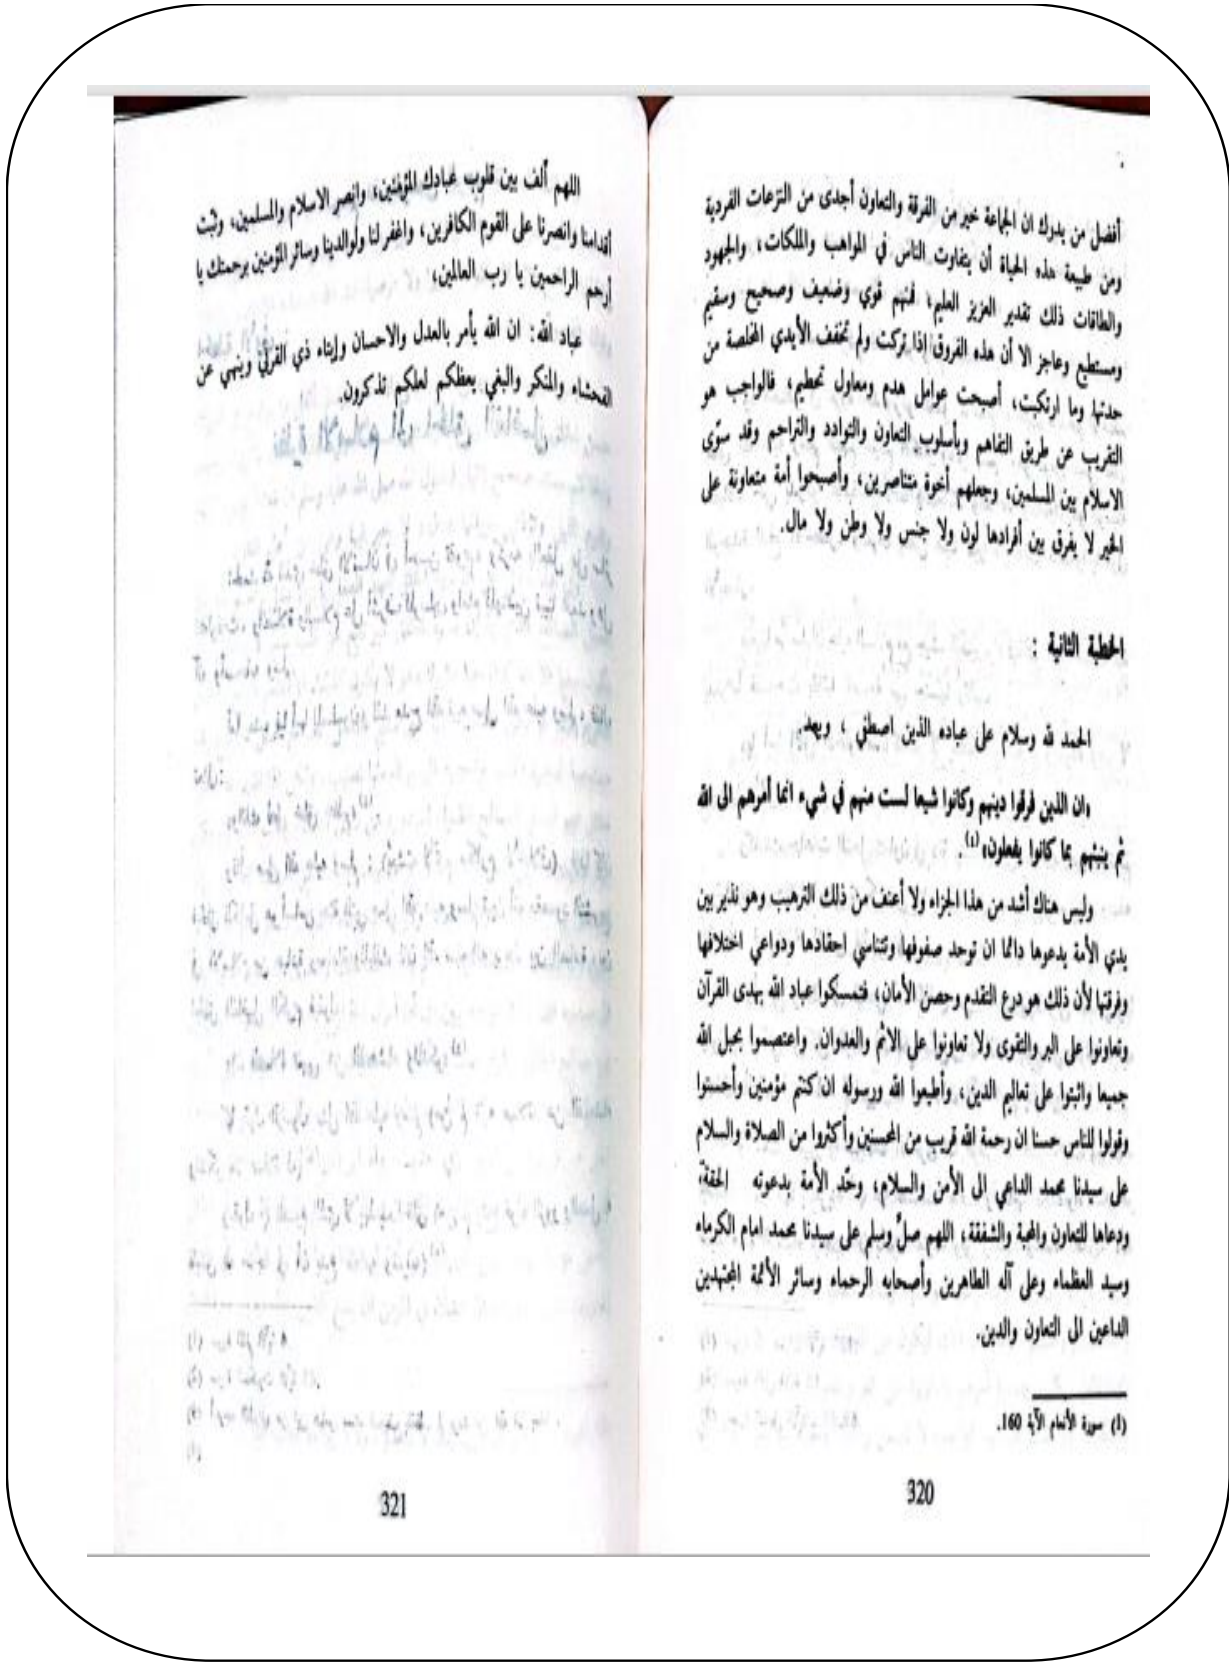 أفضل من يدرك ان الجماعة خير من الفرقة والتعاون أجدى من النزعات الفردية
ومن طبيعة هذه الحياة أن يتفاوت الناس في المواهب والملكات، والجهود
والطاقات ذلك تقدير العزيز العليم، فمنهم قوي وضعيف وصحيح وسقيم
ومستطيع وعاجز الا أن هذه الفروق إذا تركت ولم تخفف الأيدي المخلصة من
حدتها وما ارتكبت، أصبحت عوامل هدم ومعاول تحطيم، فالواجب هو
التقريب عن طريق التفاهم وبأسلوب التعاون والتوادد والتراحم وقد سوّى
الاسلام بين المسلمين، وجعلهم أخوة متناصرين، وأصبحوا أمة متعاونة على
الخير لا يفرق بين أفرادها لون ولا جنس ولا وطن ولا مال.
الخطبة الثانية :
الحمد لله وسلام على عباده الذين اصطفى ، وبعد.
«ان الذين فرقوا دينهم وكانوا شيعا لست منهم في شيء انما أمرهم الى الله
ثم ينبئهم بما كانوا يفعلون»(1).
وليس هناك أشد من هذا الجزاء ولا أعنف من ذلك الترهيب وهو نذير بين
يدي الأمة يدعوها دائما ان توحد صفوفها وتتناسى احقادها ودواعي اختلافها
وفرقتها لأن ذلك هو درع التقدم وحصن الأمان، فتمسكوا عباد الله بهدى القرآن
وتعاونوا على البر والتقوى ولا تعاونوا على الاثم والعدوان. واعتصموا بحبل الله
جميعا واثبتوا على تعاليم الدين، وأطيعوا الله ورسوله ان كنتم مؤمنين وأحسنوا
وقولوا للناس حسنا ان رحمة الله قريب من المحسنين وأكثروا من الصلاة والسلام
على سيدنا محمد الداعي الى الأمن والسلام، وحّد الأمة بدعوته الحقة،
ودعاها للتعاون والمحبة والشفقة، اللهم صلّ وسلم على سيدنا محمد امام الكرماء
وسيد العظماء وعلى آله الطاهرين وأصحابه الرحماء وسائر الأئمة المجتهدين
الداعين الى التعاون والدين.
(1) سورة الأنعام الآية 160.
320
اللهم ألف بين قلوب عبادك المؤمنين، وانصر الاسلام والمسلمين، وثبت
أقدامنا وانصرنا على القوم الكافرين، واغفر لنا ولوالدينا وسائر المؤمنين برحمتك يا
أرحم الراحمين يا رب العالمين،
عباد الله: ان الله يأمر بالعدل والاحسان وإيتاء ذي القربى وينهي عن
الفحشاء والمنكر والبغي يعظكم لعلكم تذكرون.
321